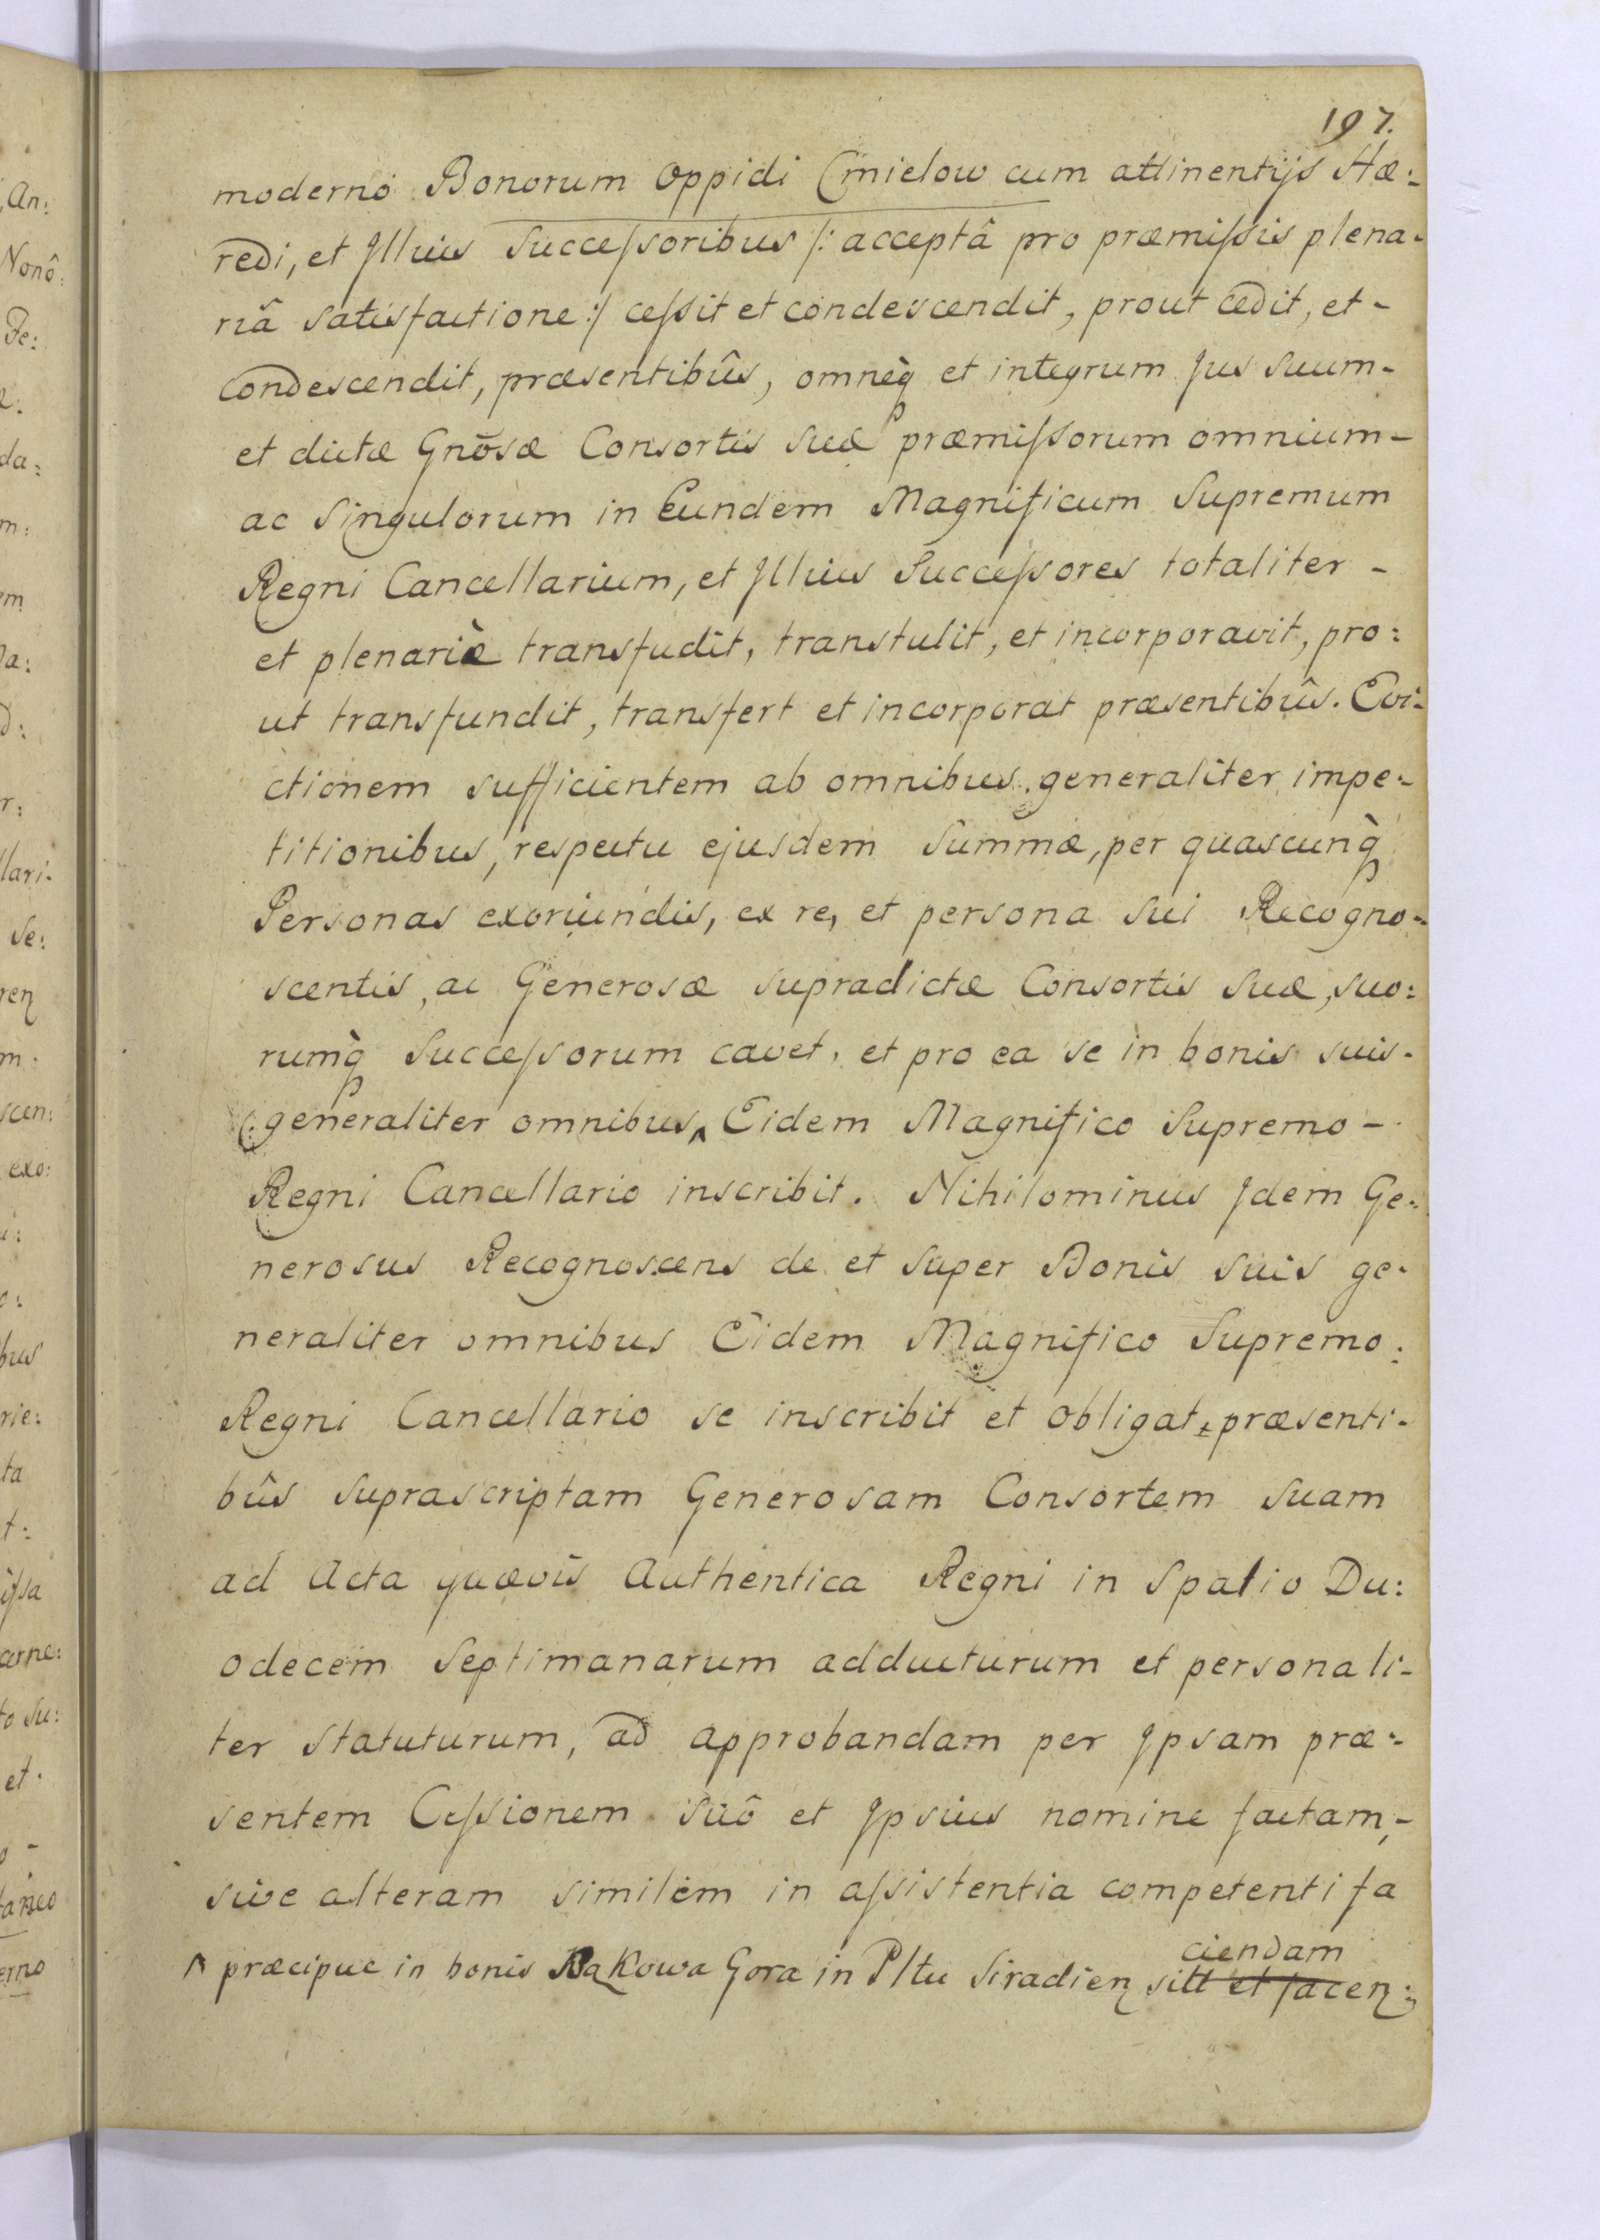 197.
moderno Bonorum Oppidi Cmielow cum attinentijs Hæ:
redi, et Illius Successoribus /: acceptâ pro præmissis plena-
riâ satisfactione :/ cessit et condescendit, prout cedit, et -
condescendit, præsentibûs, omneq̀ et integrum Jus suum -
et dictæ Gnõsæ Consortis suæ præmissorum omnium -
ac Singulorum in Eundem Magnificum Supremum
Regni Cancellarium, et Illius Successores totaliter -
et plenariè transfudit, transtulit, et incorporavit, pro:
ut transfundit, transfert et incorporat præsentibûs. Evi-
ctionem sufficientem ab omnibus generaliter impe-
titionibus, respectu ejusdem Summæ, per quascunq̀
Personas exoriundis, ex re, et persona sui Recogno-
scentis, ac Generosæ supradictæ Consortis suæ, suo:
rumq̀ Successorum cavet, et pro ea se in bonis suis -
generaliter omnibus ^ Eidem Magnifico Supremo -
Regni Cancellario inscribit. Nihilominus Idem Ge-
nerosus Recognoscens de et super Bonis suis ge-
neraliter omnibus Eidem Magnifico Supremo:
Regni Cancellario se inscribit et obligat, præsenti-
bûs suprascriptam Generosam Consortem suam
ad Acta quævis Authentica Regni in Spatio Du:
odecem Septimanarum adducturum et personali-
ter statuturum, ad approbandam per Ipsam præ:-
sentem Cessionem suô et Ipsius nomine factam, -
sive alteram similem in assistentia competenti fa
ciendam
^ præcipue in bonis Rąkowa Gora in Pltu Siradien sitt et jacen:
An:
Nonô:
Fe:
da:
m:
em
lari-
se:
ren
m.
scen:
exo:
bus
rie:
ta
t:
ipsa
arne:
to su:
et.
taneo
erno